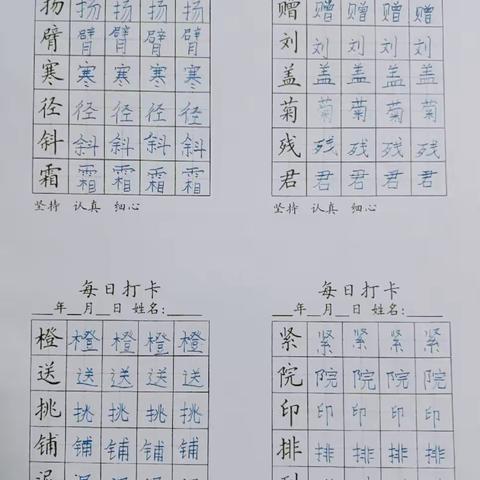 扬 扬 扬 扬 扬
臂 臂 臂 臂 臂
寒 寒 寒 寒 寒
径 径 径 径 径
斜 斜 斜 斜 斜
霜 霜 霜 霜 霜
坚持 认真 细心
赠 赠 赠 赠 赠
刘 刘 刘 刘 刘
盖 盖 盖 盖 盖
菊 菊 菊 菊 菊
残 残 残 残 残
君 君 君 君 君
坚持 认真 细心
每日打卡
__年__月__日 姓名:____
橙 橙 橙 橙 橙
送 送 送 送 送
挑 挑 挑 挑 挑
铺 铺 铺 铺 铺
每日打卡
__年__月__日 姓名:____
紧 紧 紧 紧 紧
院 院 院 院 院
印 印 印 印 印
排 排 排 排 排